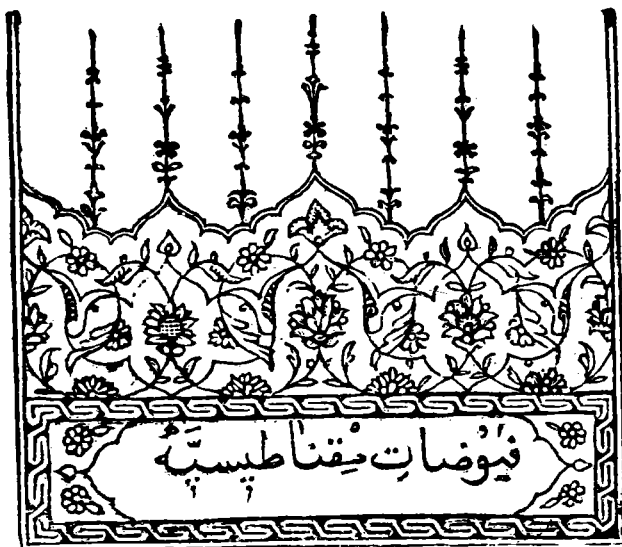 فيوضاتِ مِقناطيسيَّه